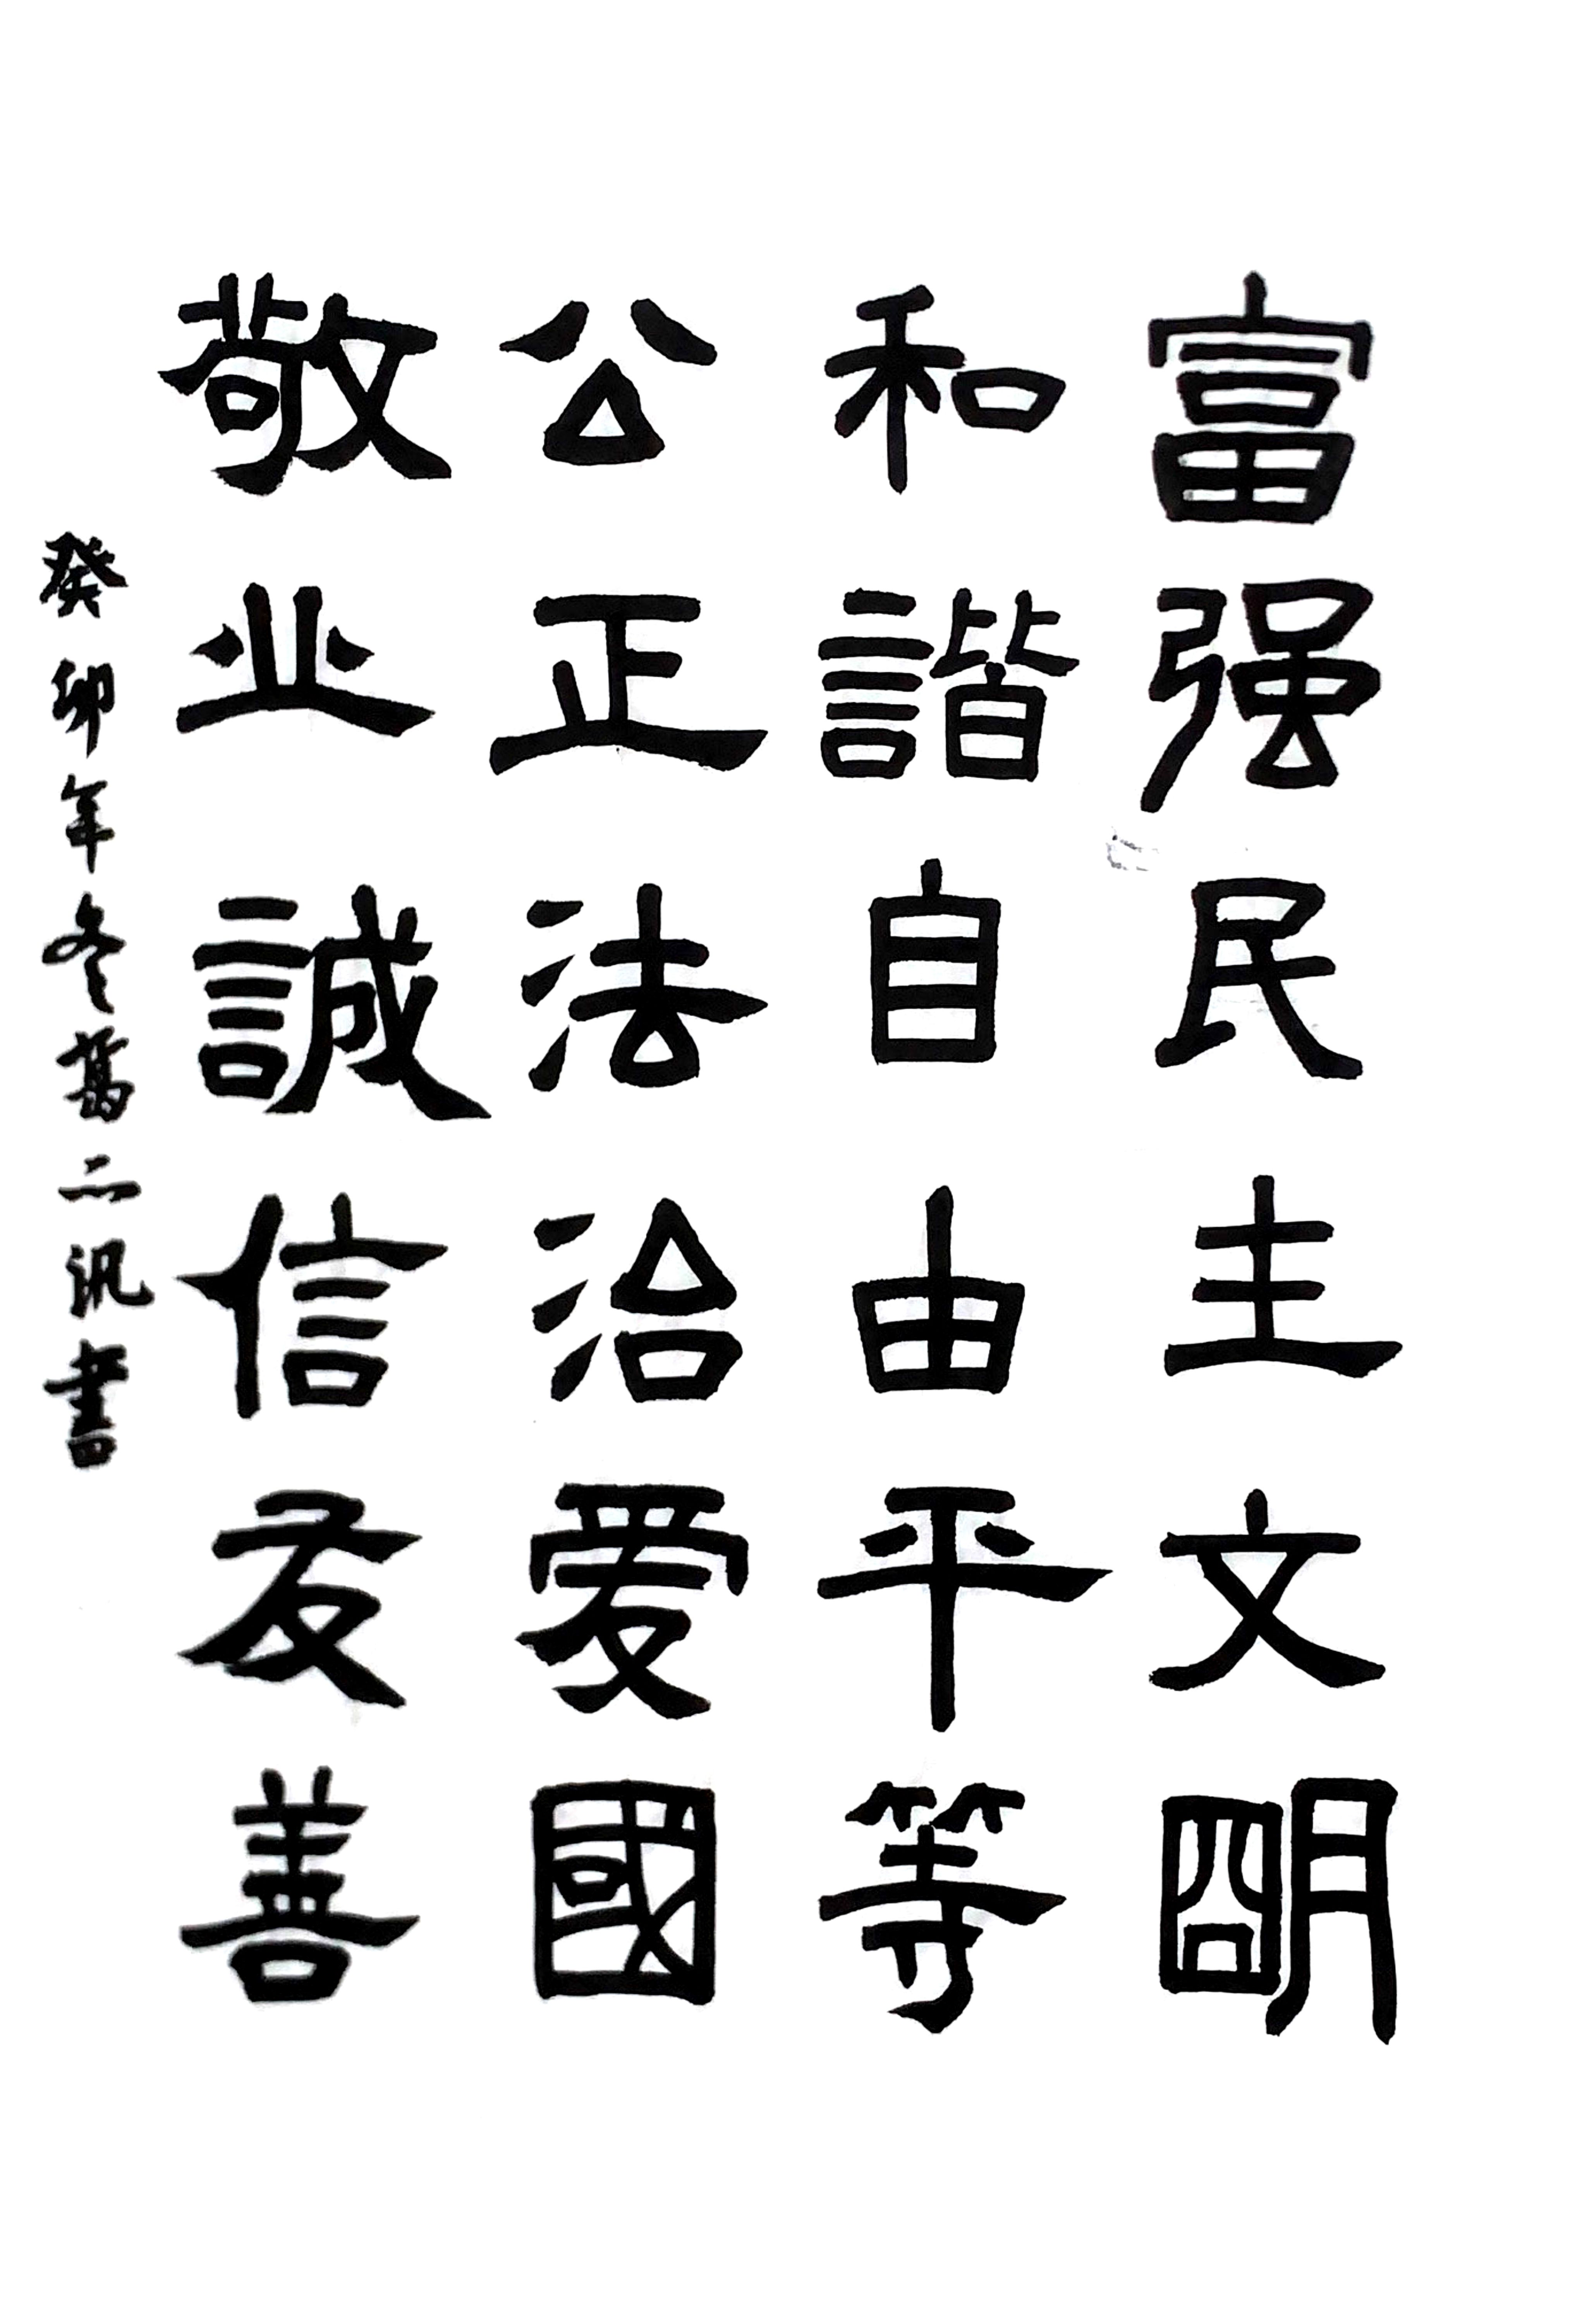 富强民主文明
和諧自由平等
公正法治爱國
敬业誠信友善
癸卯年冬葛二汎書